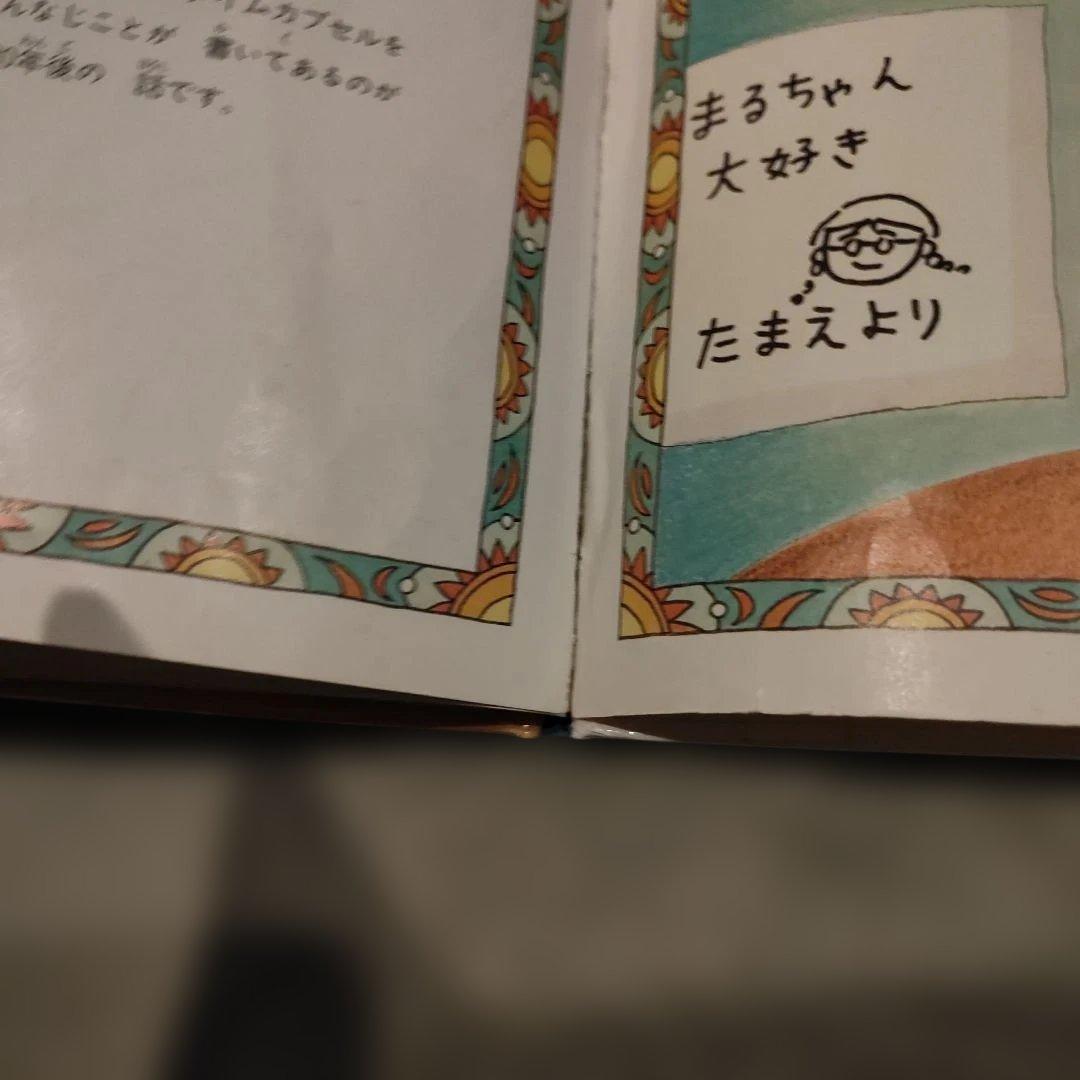 タイムカプセルを
んなじことが 書いてあるのが
年後の 話です。
まるちゃん
大好き
たまえより